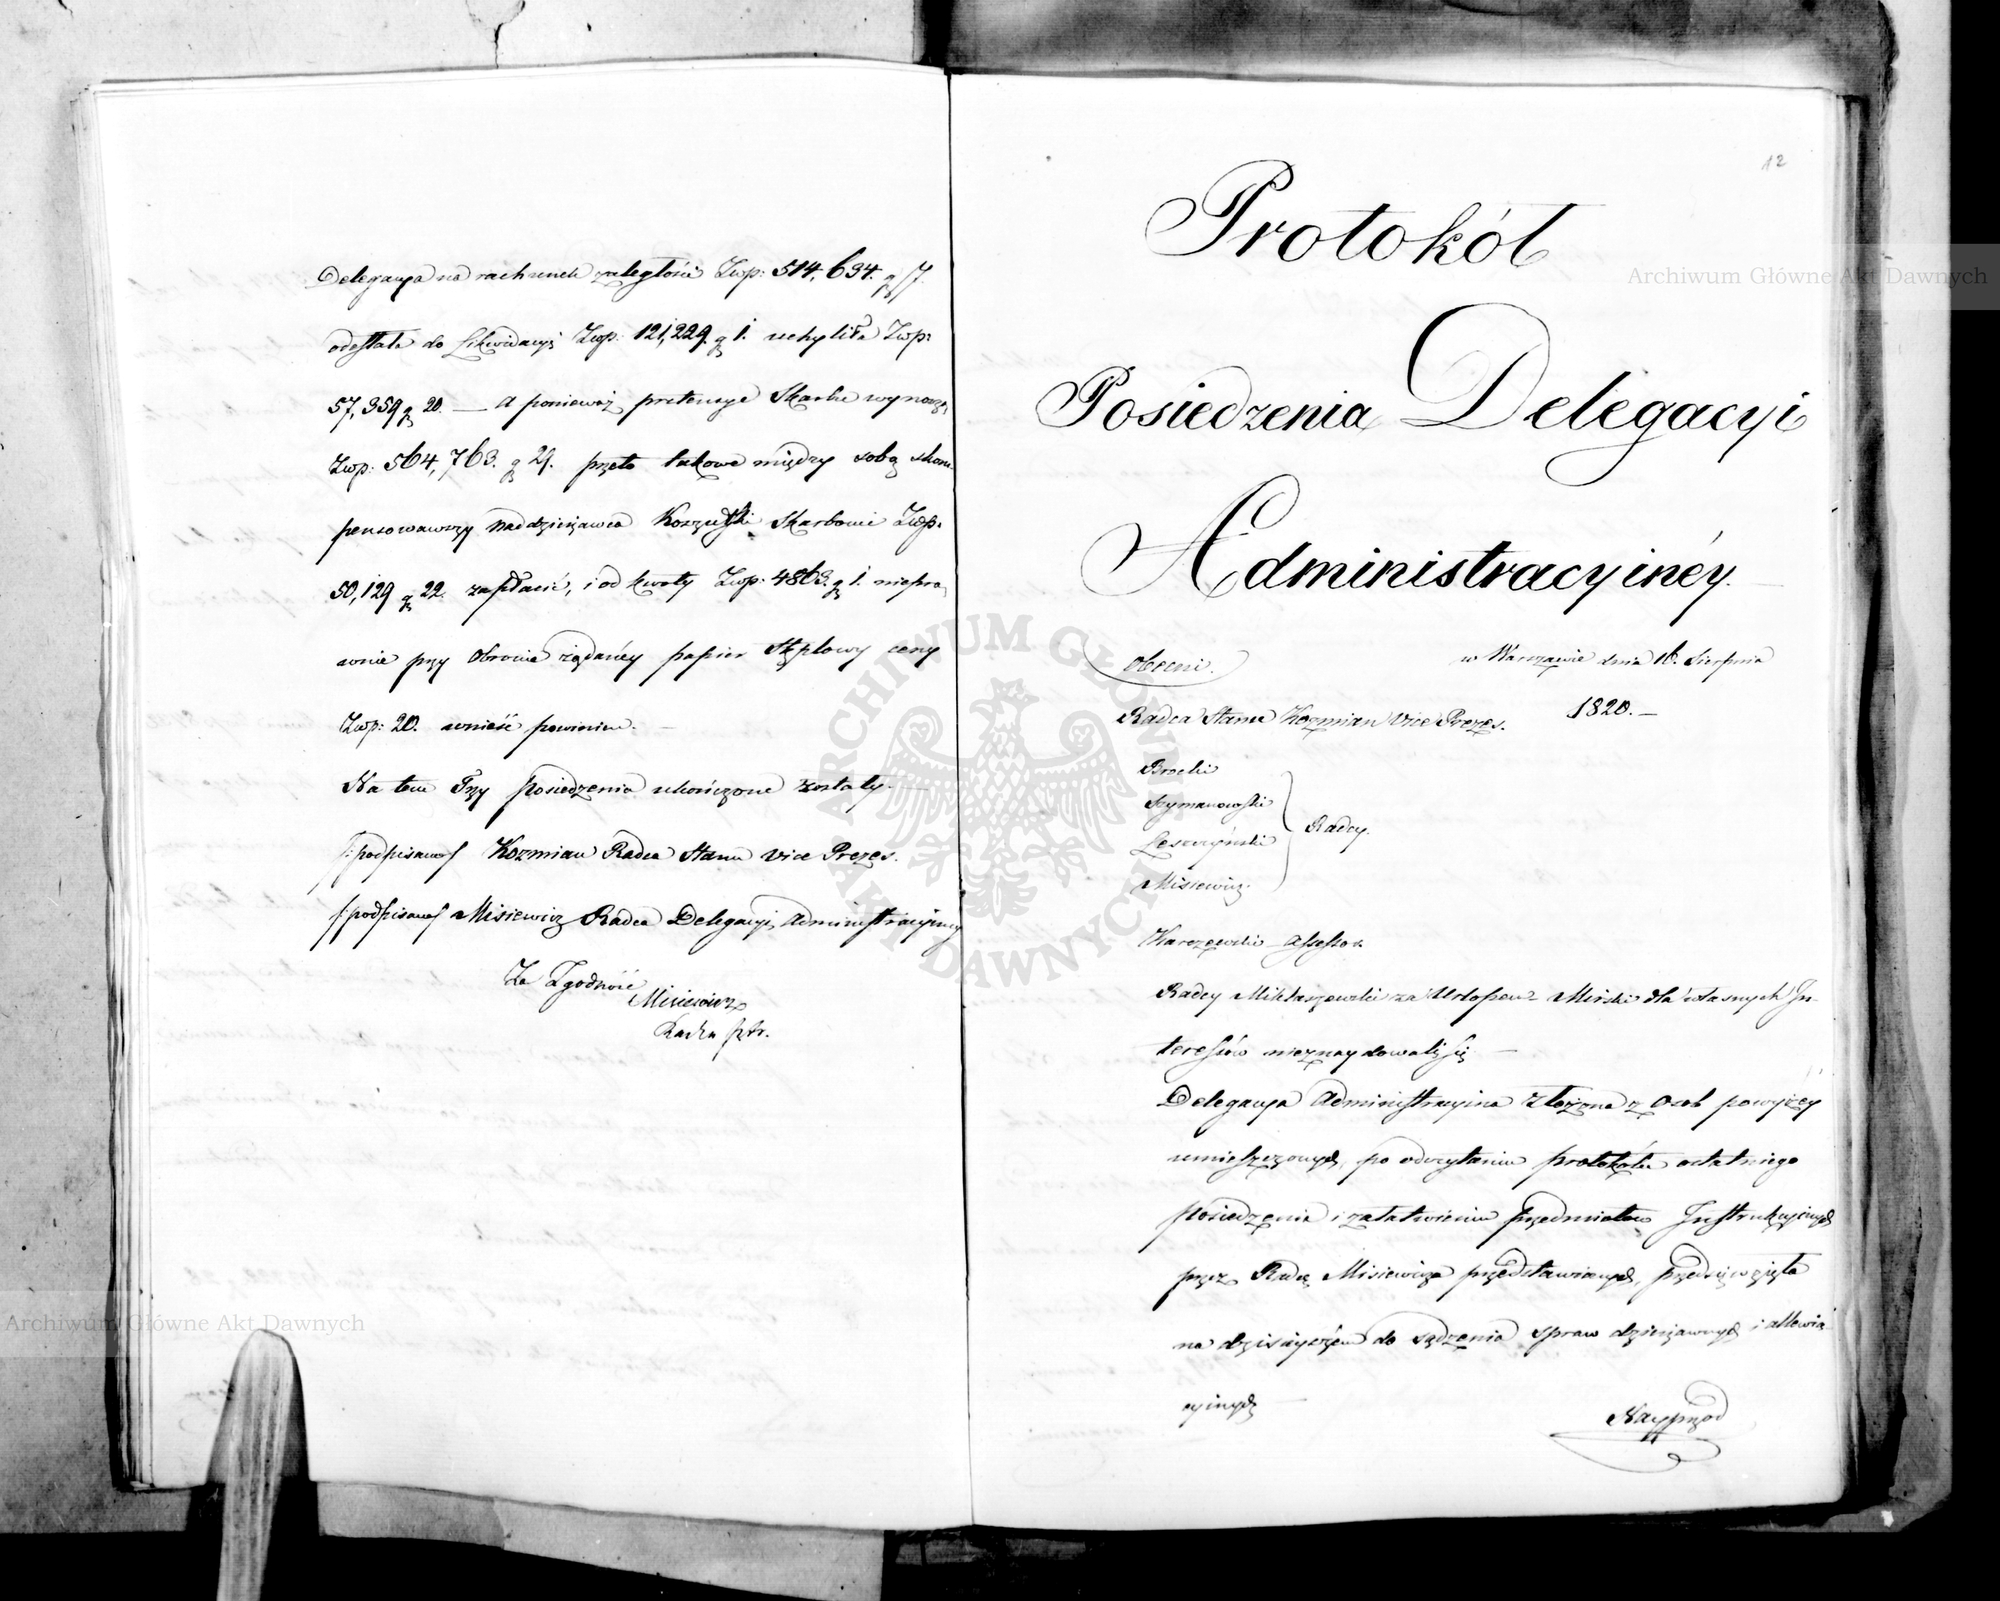 Delegacya na rachunek zaległości Złp: 514,634. gr 17.
odesłała do Likwidacyi Złp: 121,229. gr 1. uchyliła Złp:
57,359 gr 20. — A ponieważ pretensye Skarbu wynoszą
Złp: 564,763. gr 29. przeto takowe między sobą skom-
pensowawszy Naddzierżawca Koszutski Skarbowi Złp:
50,129 gr 22. zapłacić, i od kwoty Złp: 4863. gr 1. niepra-
wnie przy Obronie żądanéy papier Stęplowy ceny
Złp: 20. wnieść powinien. —
Na tem Trzy posiedzenia ukończone zostały. —
/: podpisano/ Kozmian Radca Stanu Vice Prezes.
/: podpisano/ Misiewicz Radca Delegacyi Administracyiney
Za Zgodność
Misiewicz
Radca
12
Protokół
Posiedzenia Delegacyi
Administracyinéy. —
Obecni.
w Warszawie dnia 16. Sierpnia
1820. —
Radca Stanu Kozmian Vice Prezes.
Brocki
Szymanowski
Leszczyński
Misiewicz.
Radcy.
Karczewski Assessor.
Radcy Miklaszewski za Urlopem Mirski dla własnych In-
teressów nieznaydowali się —
Delegacya Administracyina złożona z Osób powyżéy
umieszczonych, po odczytaniu protokółu ostatniego
posiedzenia i załatwieniu przedmiotów Instrukcyinych
przez Radcę Misiewicza przedstawionych, przedsięwzięła
na dzisieyszém do sądzenia spraw dzierżawnych i allewia-
cyinych —
Nayprzod
Archiwum Główne Akt Dawnych
Archiwum Główne Akt Dawnych
ARCHIWUM GŁÓWNE AKT DAWNYCH